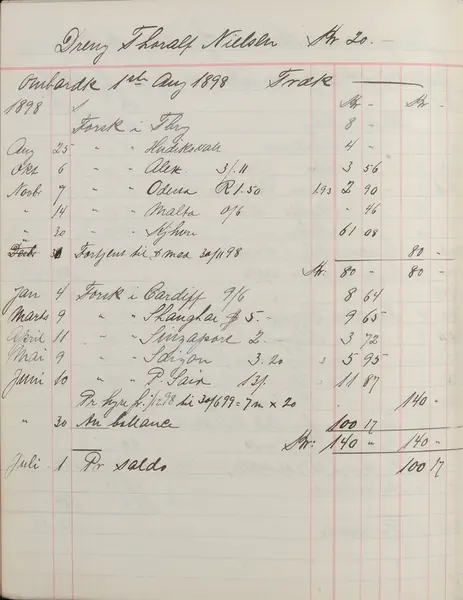 Dreng Thoralf Nielsen Kr 20.-
Ombord 1ste Aug 1898 Træk
1898 Kr - Kr -
Forsk i 8 -
Aug 25 " " Hudiksvall 4 -
Okt 6 " - Alex 3/.11 3 56
Novbr 7 " - Odessa R 1.50 1.93 2 90
" 14 " " Malta 0/6 - 46
" 30 " - Kjhvn 61 08
Fortjent til & med 30/11 98 80 -
Kr: 80 - 80 -
Jan 4 Forsk i Cardiff 9/6 8 64
Marts 9 " - Shanghai $ 5.- 9 65
April 11 " - Singapore 2. - 3 72
Mai 9 " - Saigon 3.20 5 95
Juni 10 " " P. Said 13/. 11 87
Pr hyre fr. 1/12 98 til 30/6 99 = 7 m x 20 140 -
" 30 An ballance 100 17
Kr: 140 " 140 -
Juli 1 Pr saldo 100 17